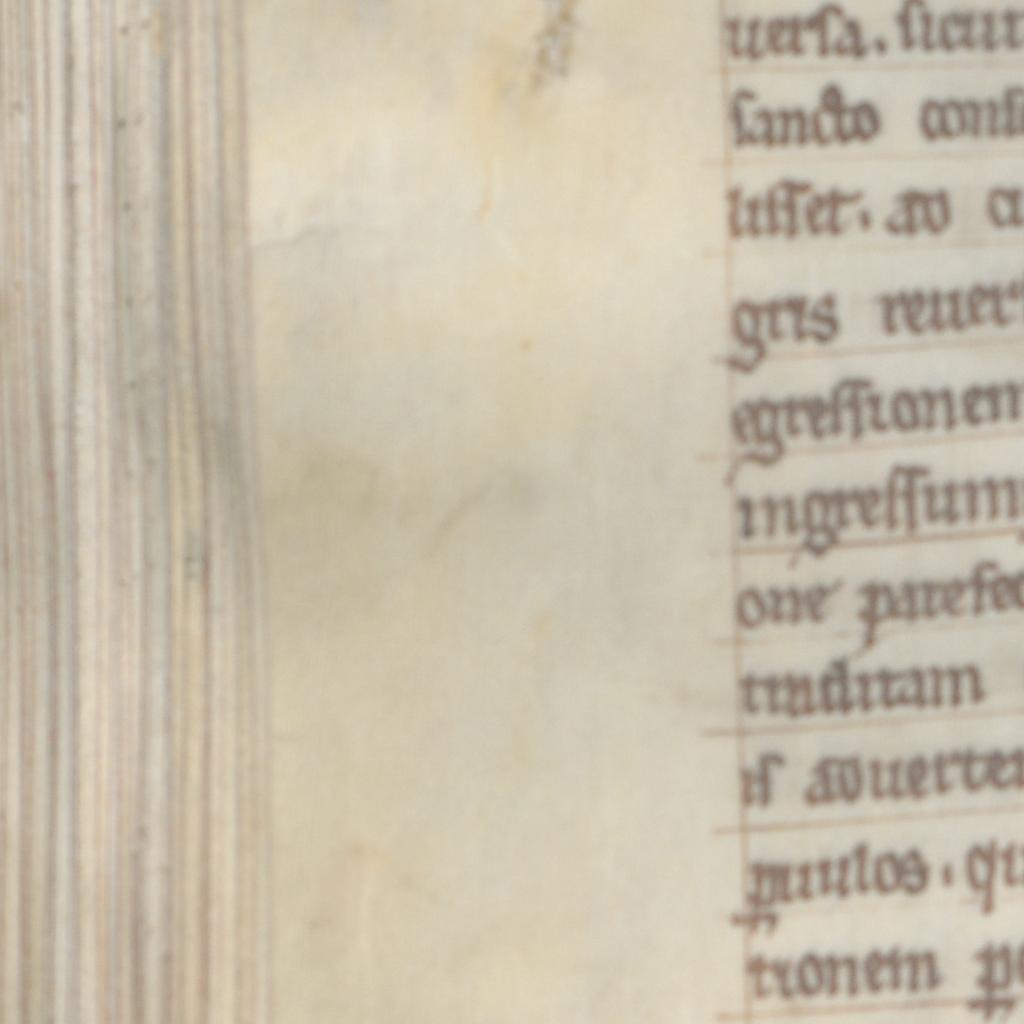 uersa. sicut
sancto cons
lisset. ad a
gris reuer
egressionem
ingressum
one patefec
traditam
is aduerten
paruulos. qu
tionem p